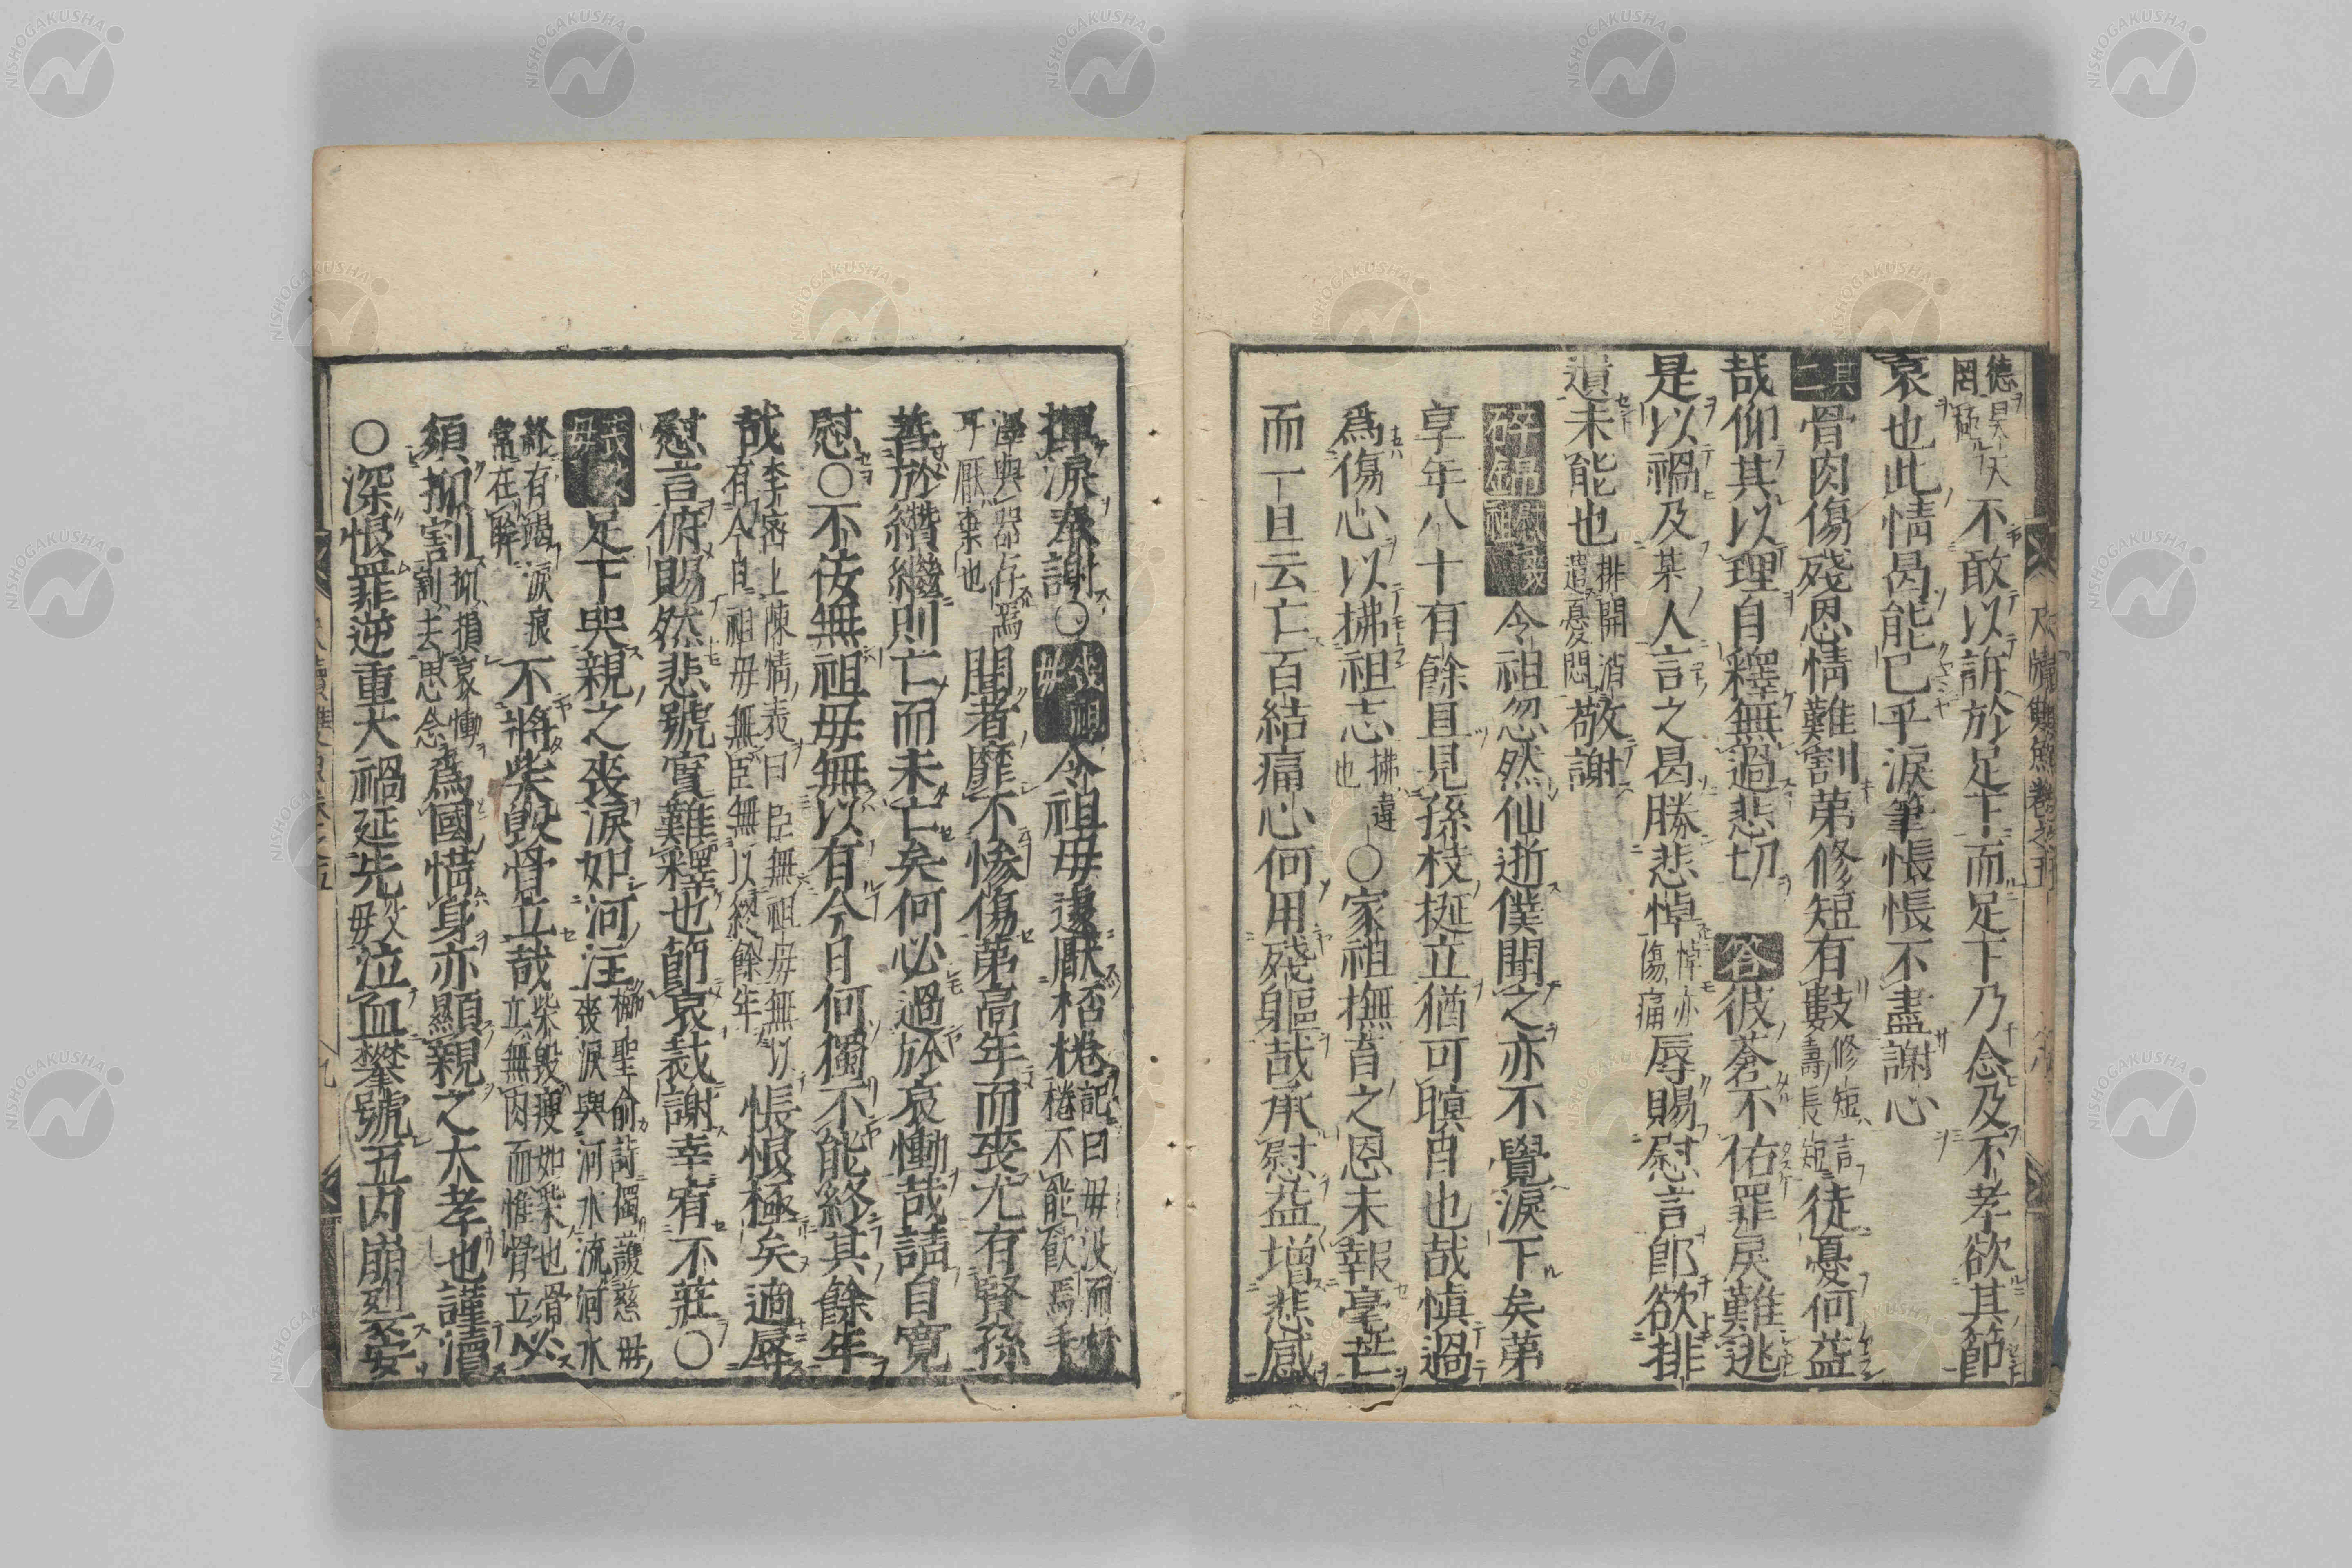 德昊天罔極不敢以訴於足下而足下乃念及不孝欲其節
哀也此情曷能已乎淚筆悵悵不盡謝心
其二骨肉傷殘恩情難割第修短有數修短言壽長短徒憂何益
哉仰其以理自釋無過悲切 答彼蒼不佑罪戾難逃
是以禍及某人言之曷勝悲悼悼亦傷痛辱賜慰言卽欲排
遺未能也排開消遣憂悶敬謝
碎錦慰喪祖令祖忽然仙逝僕聞之亦不覺淚下矣第
享年八十有餘且見孫枝挺立猶可瞑目也哉愼過
爲傷心以拂祖志拂違也○家祖撫育之恩未報毫芒
而一旦云亡百結痛心何用殘軀哉承慰益增悲感
揮淚奉謝○喪祖母令祖母遽厭桮棬記曰母沒而杯棬不能飮焉手
澤與口器存焉耳厭棄也聞者靡不慘傷第高年而喪尤有賢孫
善於纘繼則亡而未亡矣何必過於哀慟哉請自寬
慰○不侫無祖母無以有今日何獨不能終其餘年
哉李密上陳情表曰臣無祖母無以有今日祖母無臣無以終餘年悵恨極矣適辱
慰言俯賜然悲號實難釋也節哀裁謝幸宥不莊○
足下與親之喪淚如河注喪淚與河水流河水
終有竭淚痕常在眸不將柴毀骨立哉柴毀瘦如柴也骨立無肉而惟骨立必
須抑割抑損哀慟割去思念爲國惜身亦顯親之大孝也謹瀆
○深恨罪逆重大禍延先父母泣血攀號五內崩裂安
尺牘雙魚卷之五
八
九